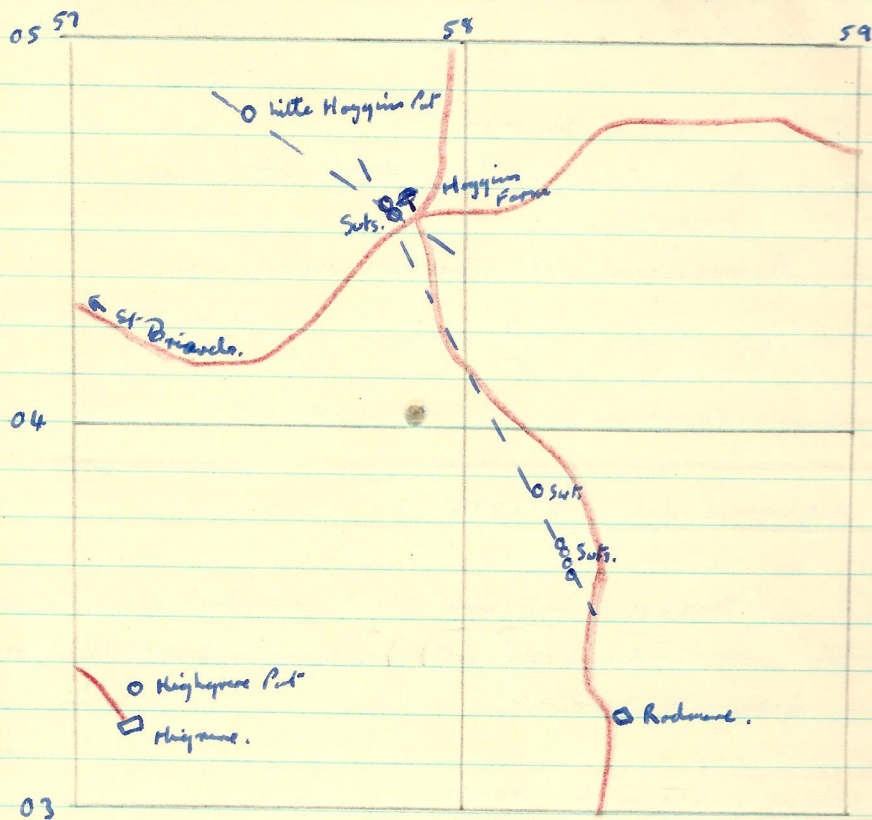 57
58
59
05
Little Hoggins Pot
Hoggins
Farm
Swts.
St Briavels.
04
Swts
Swts.
Highgrove Pot
Rodmore.
03